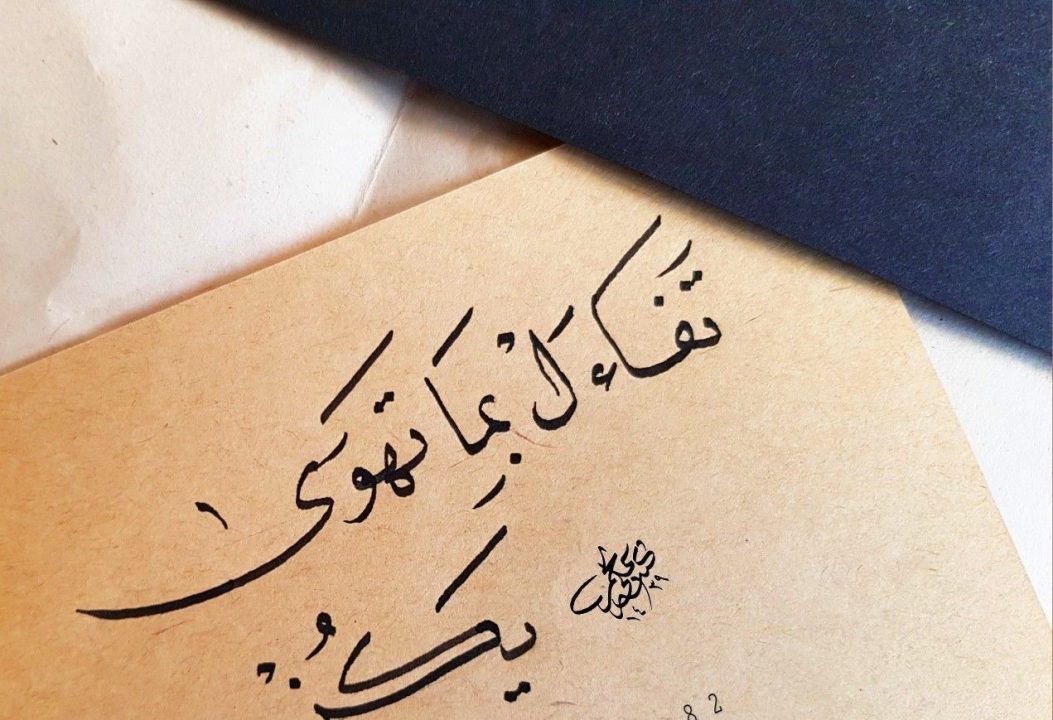 تَفاءلْ بِمَا تهوى
يكُن
82